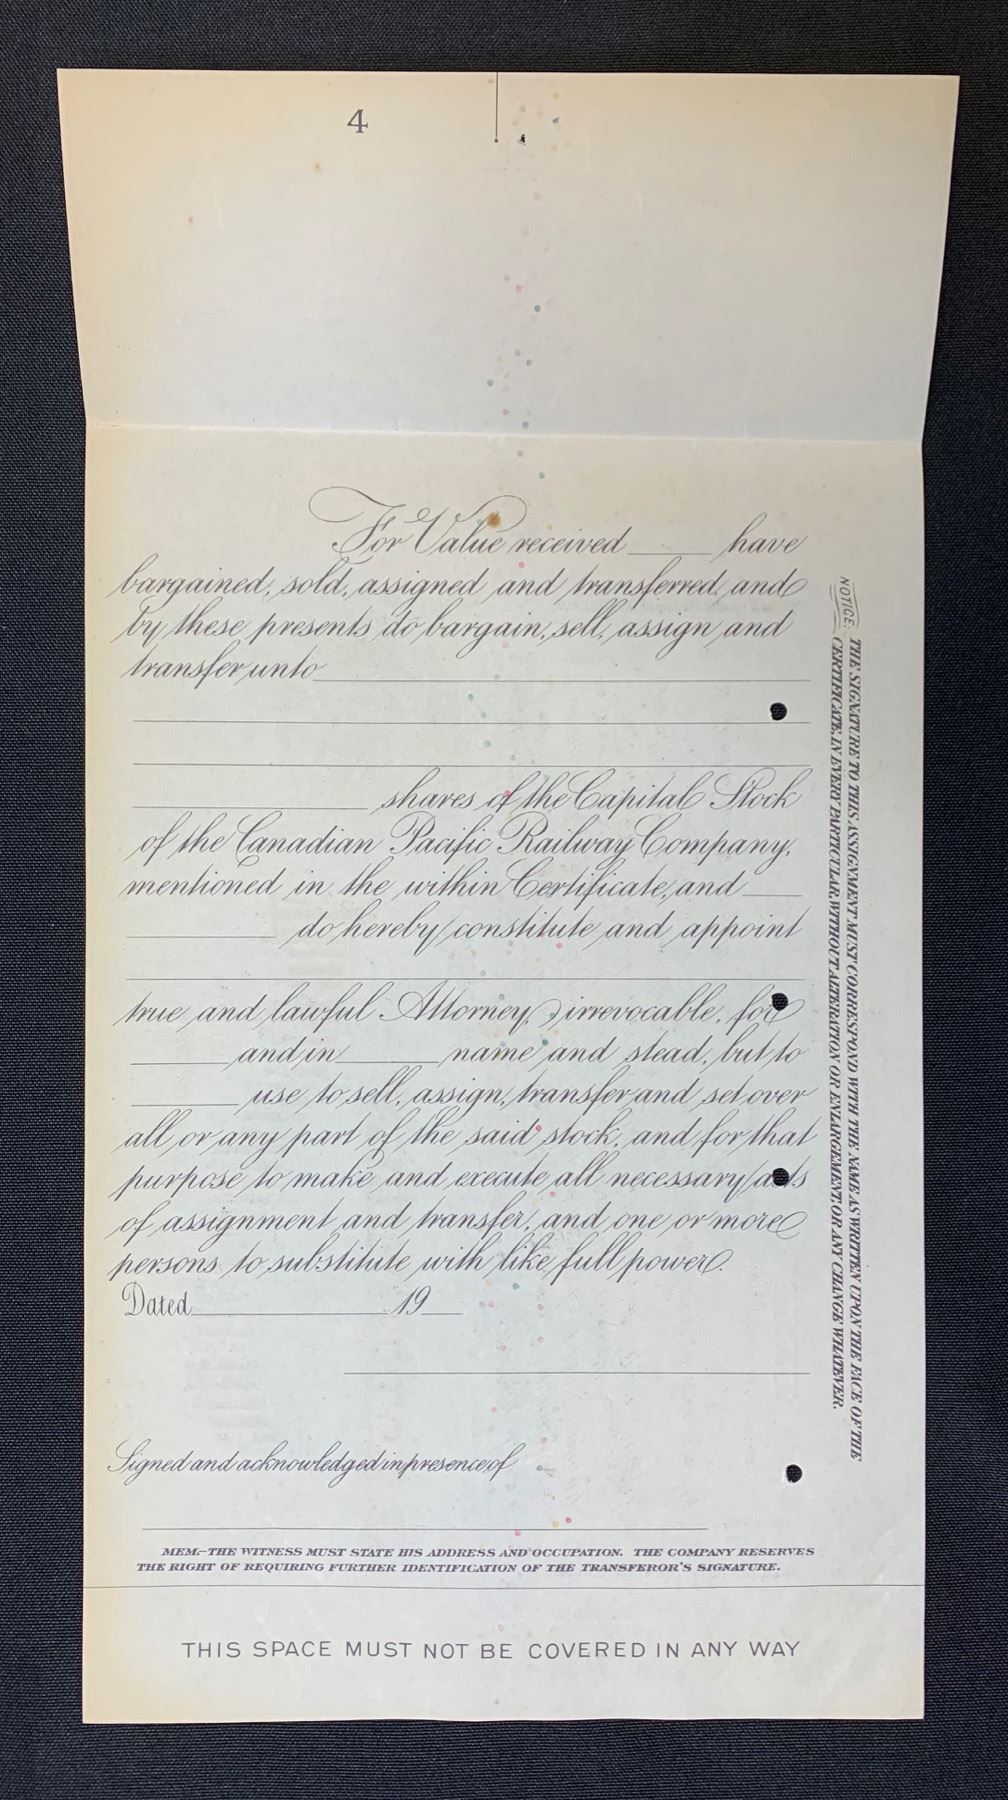 4
For Value received ______ have
bargained, sold, assigned and transferred, and
by these presents do bargain, sell, assign and
transfer unto
shares of the Capital Stock
of the Canadian Pacific Railway Company,
mentioned in the within Certificate, and
do hereby constitute and appoint
true and lawful Attorney, irrevocable, for
______ and in ______ name and stead, but to
______ use to sell, assign, transfer and set over
all or any part of the said stock, and for that
purpose to make and execute all necessary acts
of assignment and transfer, and one or more
persons to substitute with like full power.
Dated ______ 19
Signed and acknowledged in presence of
MEM.-THE WITNESS MUST STATE HIS ADDRESS AND OCCUPATION. THE COMPANY RESERVES
THE RIGHT OF REQUIRING FURTHER IDENTIFICATION OF THE TRANSFEROR'S SIGNATURE.
THIS SPACE MUST NOT BE COVERED IN ANY WAY
NOTICE: THE SIGNATURE TO THIS ASSIGNMENT MUST CORRESPOND WITH THE NAME AS WRITTEN UPON THE FACE OF THE
CERTIFICATE, IN EVERY PARTICULAR WITHOUT ALTERATION OR ENLARGEMENT OR ANY CHANGE WHATEVER.